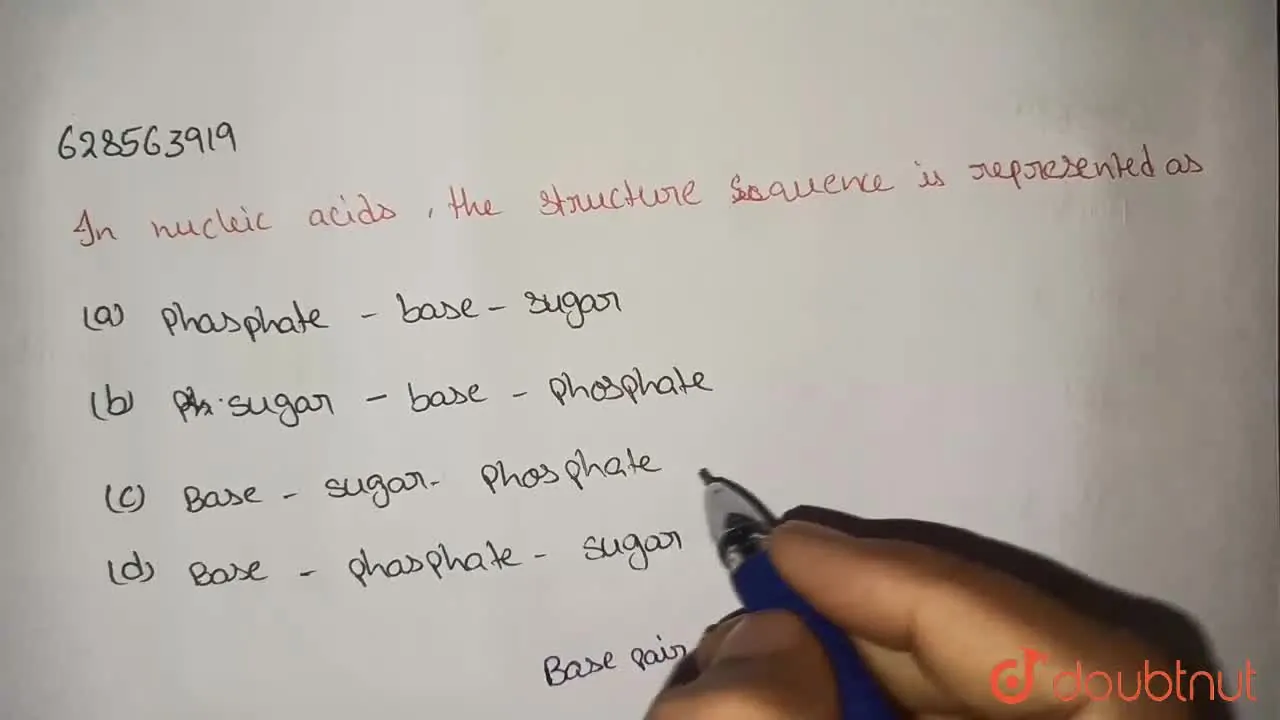 628563919
In nucleic acids, the structure Sequence is represented as
(a) phasphate - base - sugar
(b) Ph. sugar - base - phosphate
(c) Base - sugar - phosphate
(d) Base - phasphate - sugar
Base pair
doubtnut